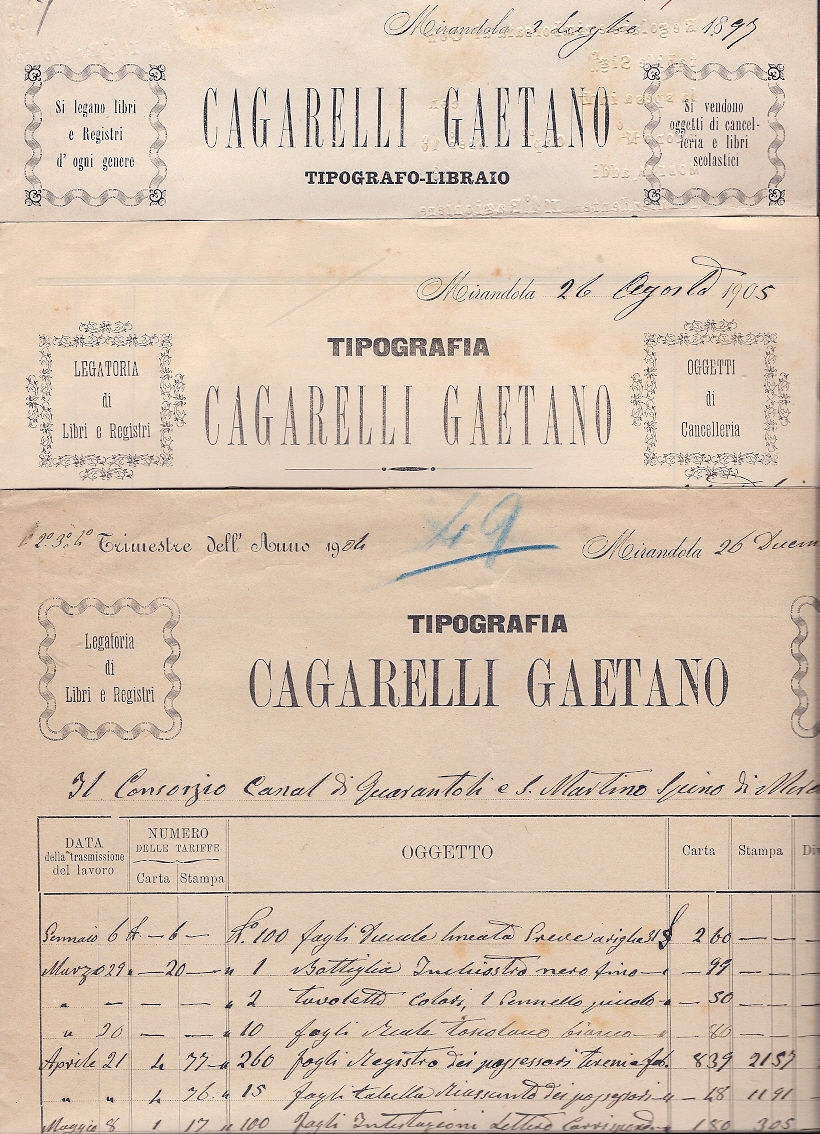 Mirandola 3 Luglio 1897
Si legano libri
e Registri
d' ogni genere
CAGARELLI GAETANO
TIPOGRAFO-LIBRAIO
Si vendono
oggetti di cancel-
leria e libri
scolastici
Mirandola 26 Agosto 1905
LEGATORIA
di
Libri e Registri
TIPOGRAFIA
CAGARELLI GAETANO
OGGETTI
di
Cancelleria
2º 3º 4º Trimestre dell' Anno 1904
49
Mirandola 26 Decem
Legatoria
di
Libri e Registri
TIPOGRAFIA
CAGARELLI GAETANO
Il Consorzio Canal di Quarantoli e S. Martino Spino di
DATA
della trasmissione
del lavoro
NUMERO
DELLE TARIFFE
Carta Stampa
OGGETTO
Carta Stampa
Gennaio 6 — 6 — Nº 100 fogli Ducale lineata £ 2 60 — —
Marzo 29 — 20 — " 1 Bottiglia Inchiostro nero fino " — 99 — —
" — — — " 2 tavolette Colori, 1 Pennello piccolo " — 50 — —
" 30 — — " 10 fogli Reale bianco " — 80 — —
Aprile 21 4 77 " 260 fogli Registro dei possessori 8 39 21 57
" " 4 76 " 15 fogli tabella Riassunto dei possessori " — 48 11 91
Maggio 8 1 17 " 100 fogli Intestazioni Lettere 1 80 3 05